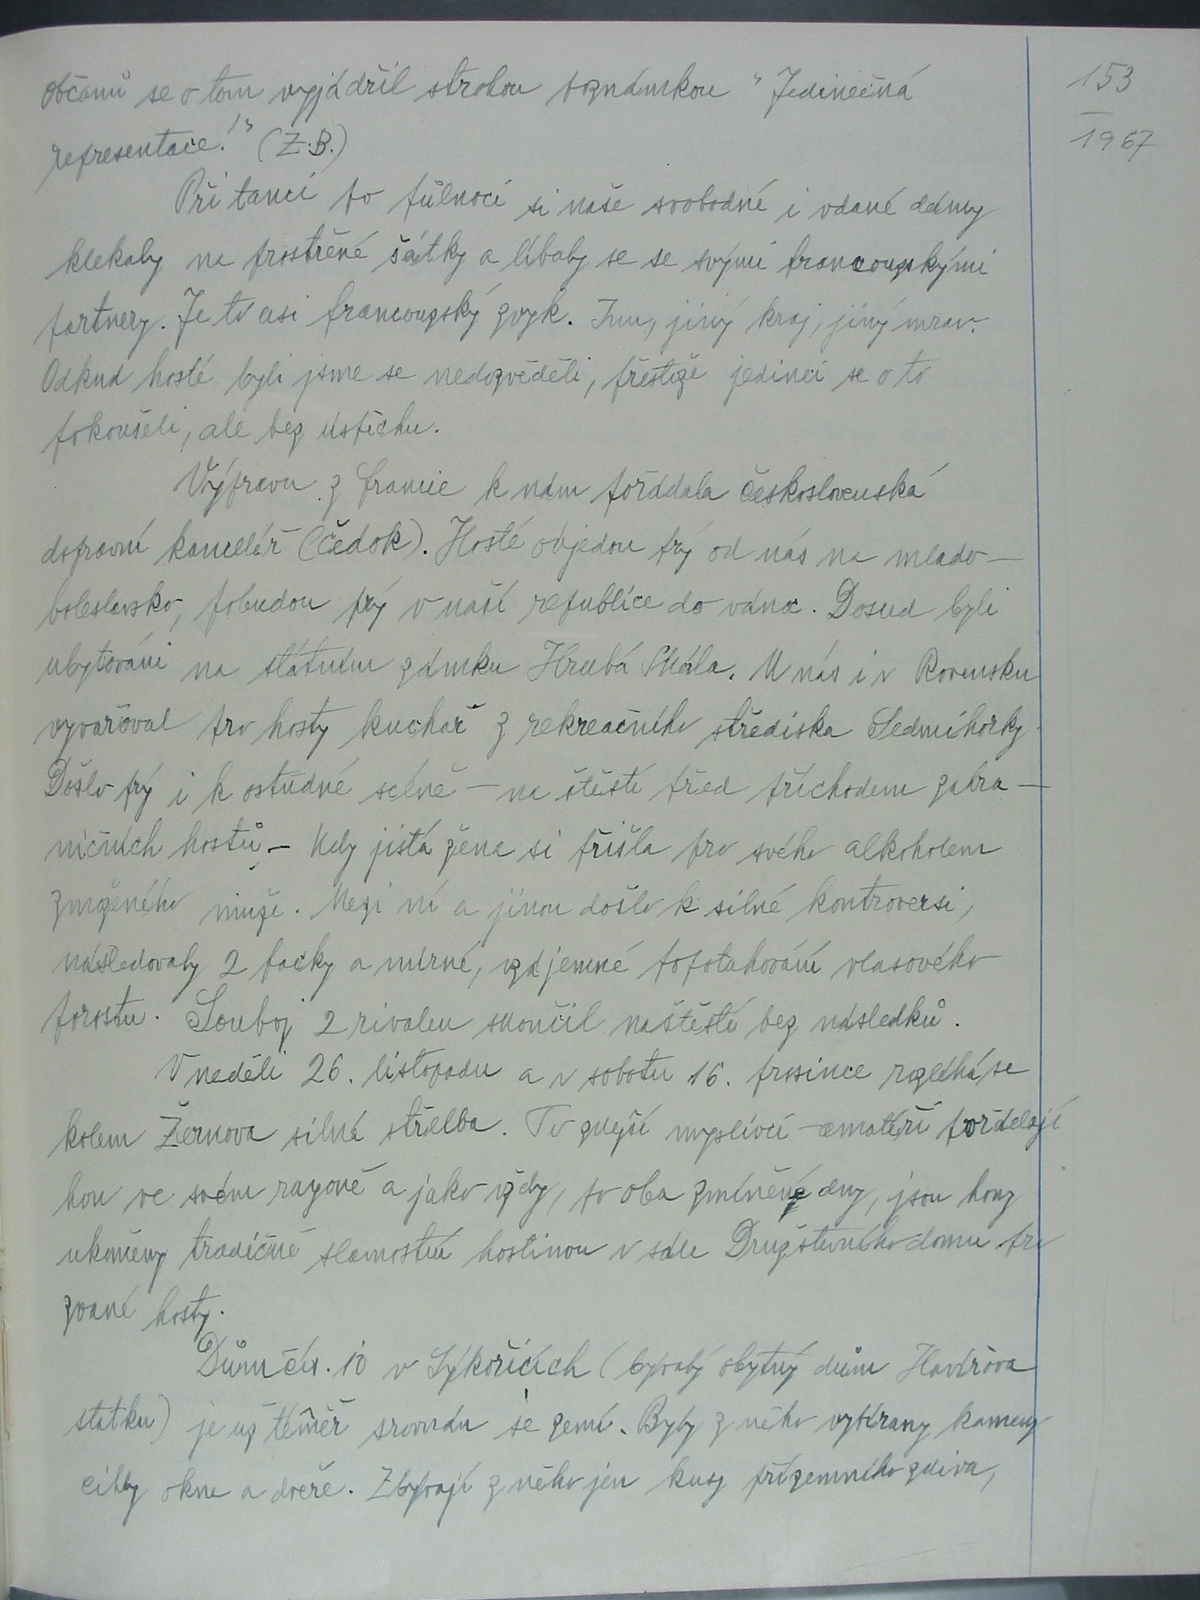 občanů se o tom vyjádřil strohou poznámkou "Jedinečná
representace!" (Z.B.)
153
1967
Při tanci po půlnoci si naše svobodné i vdané dámy
klekaly na prostřené šátky a líbaly se se svými francouzskými
partnery. Je to asi francouzský zvyk. Inu, jiný kraj, jiný mrav.
Odkud hosté byli jsme se nedozvěděli, přestože jedinci se o to
pokoušeli, ale bez úspěchu.
Výpravu z Francie k nám pořádala československá
dopravní kancelář (Čedok). Hosté odjedou prý od nás na mlado-
boleslavsko, pobudou prý v naší republice do vánoc. Dosud byli
ubytováni na státním zámku Hrubá Skála. U nás i v Rovensku
vyvařoval pro hosty kuchař z rekreačního střediska Sedmihorky.
Došlo prý i k ostudné scéně - na štěstí před příchodem zahra-
ničních hostů - kdy jistá žena si přišla pro svého alkoholem
zmoženého muže. Mezi ní a jinou došlo k silné kontroversi,
následovaly 2 facky a mírné, vzájemné popotahování vlasového
porostu. Souboj 2 rivalek skončil naštěstí bez následků.
V neděli 26. listopadu a v sobotu 16. prosince rozléhá se
kolem Žernova silná střelba. To zdejší myslivci-amatéři pořádají
hon ve svém rayoně a jako vždy, po oba zmíněné dny, jsou hony
ukončeny tradičně slavnostní hostinou v sále Družstevního domu pro
zvané hosty.
Dům čís. 10 v Sýkořicích (bývalý obytný dům Havířova
statku) je už téměř srovnán se zemí. Byly z něho vybírany kameny
cihly okna a dveře. Zbývají z něho jen kusy přízemního zdiva,